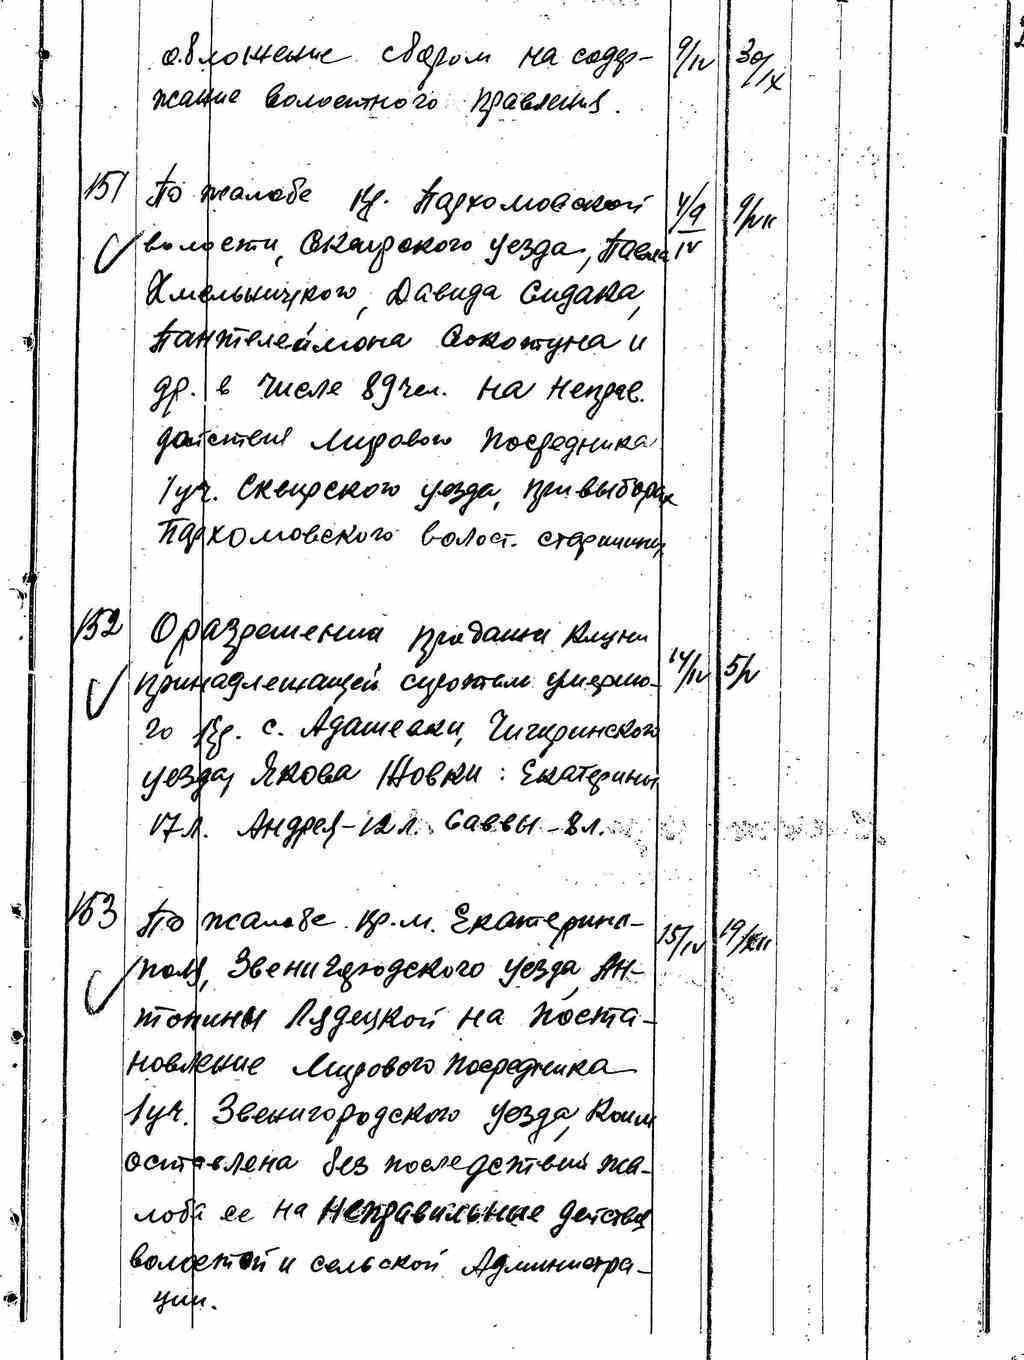 обложение сбором на содер- 9/IV 30/IX
жание волостного правления.
151 По жалобе кр. Пархомовской 4/9 IV 9/VII
волости, Сквирского уезда, Павла
Хмельницкого, Давида Сидака,
Пантелеймона Сокотуна и
др. в числе 89 чел. на неправ.
действия Мирового Посредника
1 уч. Сквирского уезда, при выборах
Пархомовского волост. старшины
152 О разрешении продажи клуни 14/IV 5/V
принадлежащей сиротам умерше-
го кр. с. Адамевки, Чигиринского
уезда, Якова Жовки: Екатерины
17 л. Андрея - 12 л. Саввы - 8 л.
153 По жалобе кр. м. Екатерино- 15/IV 19/XII
поля, Звенигородского уезда, Ан-
тонины Лядецкой на поста-
новление Мирового Посредника
1 уч. Звенигородского уезда, коим
оставлена без последствий жа-
лоба ее на неправильные действия
волостной и сельской Администра-
ции.